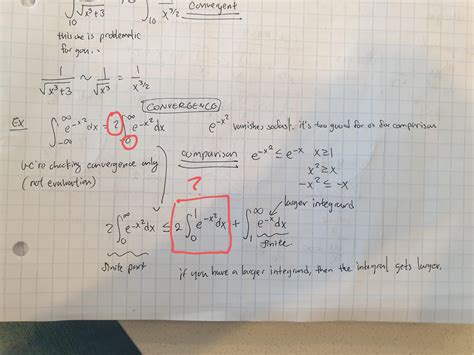 ∫₁₀ 1/√(x³+3) ∫₁₀ 1/x^{3/2} convergent
this one is problematic
for you..
1/√(x³+3) ~ 1/√x³ = 1/x^{3/2}
CONVERGENCE
Ex ∫_{-∞}^{∞} e^{-x²}dx = 2∫_0^∞ e^{-x²}dx e^{-x²} vanishes so fast. it's too good for us for comparison
we're checking convergence only
(not evaluation)
comparison e^{-x²} ≤ e^{-x} x≥1
x² ≥ x
-x² ≤ -x
?
larger integrand
2∫_0^∞ e^{-x²}dx ≤ 2∫_0^1 e^{-x²}dx + ∫_1^∞ e^{-x}dx
finite part finite
if you have a larger integrand, then the integral gets larger.